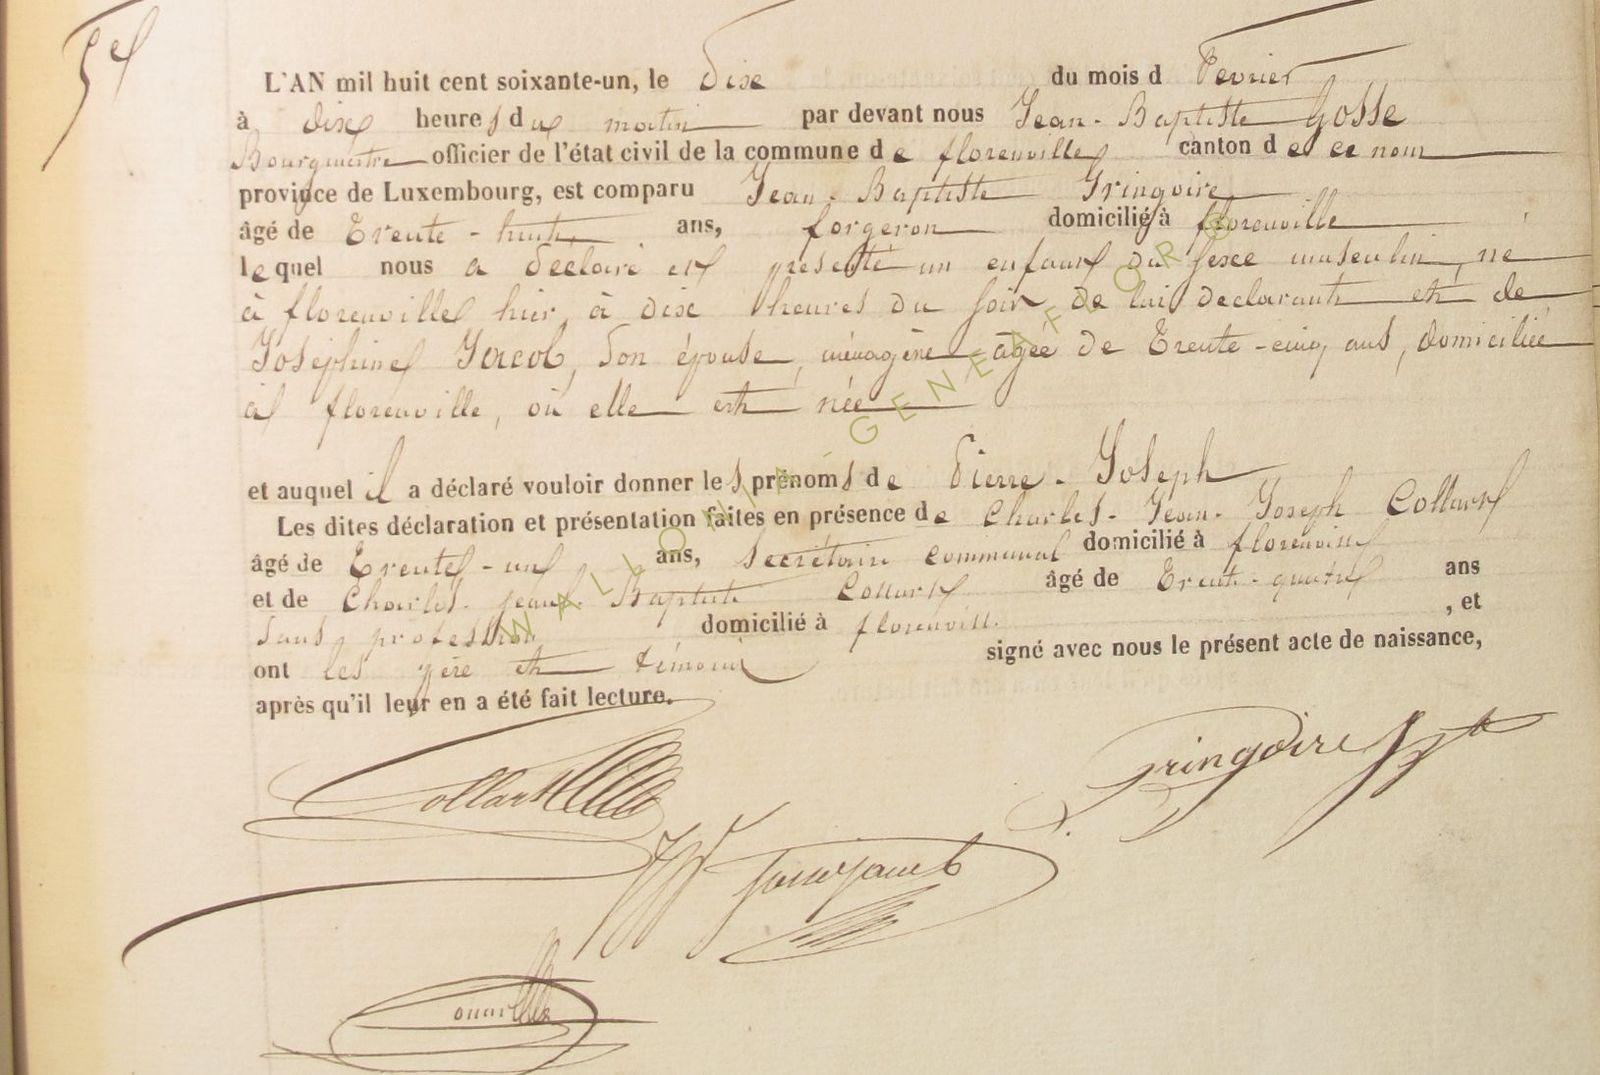 L'AN mil huit cent soixante-un, le Dix du mois d Fevrier
à dix heures du matin par devant nous Jean-Baptiste Gosse
Bourgmestre officier de l'état civil de la commune de florenville canton de ce nom
province de Luxembourg, est comparu Jean-Baptiste Gringoire
âgé de Trente-huit ans, forgeron domicilié à florenville
lequel nous a déclaré et présenté un enfant du sexe masculin, né
à florenville hier, à dix heures du soir de lui déclarant et de
Joséphine Jacob, son épouse, ménagère âgée de Trente-cinq ans, domiciliée
à florenville, où elle est née
et auquel il a déclaré vouloir donner les prénoms de Pierre-Joseph
Les dites déclaration et présentation faites en présence de Charles-Jean-Joseph Collart
âgé de Trente-un ans, Secrétaire communal domicilié à florenville
et de Charles-Jean-Baptiste Collart âgé de Trente-quatre ans
sans profession domicilié à florenville , et
ont les père et témoins signé avec nous le présent acte de naissance,
après qu'il leur en a été fait lecture.
Gringoire
Collart
WALLONIA-GENEAFLOR©